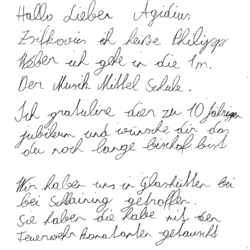 Hallo Lieber Ägidius
Zsifkovics ich heiße Philipp
Weber ich gehe in die 1m.
Der Musik Mittel Schule.
Ich gratuliere dier zu 10 jährigen
jubileum und wünsche dir das
du noch lange bischof bist
Wir haben uns in Glashütten bei
bei Schlaining getroffen.
Sie haben die habe mit den
Feuerwehr Komatanten getauscht